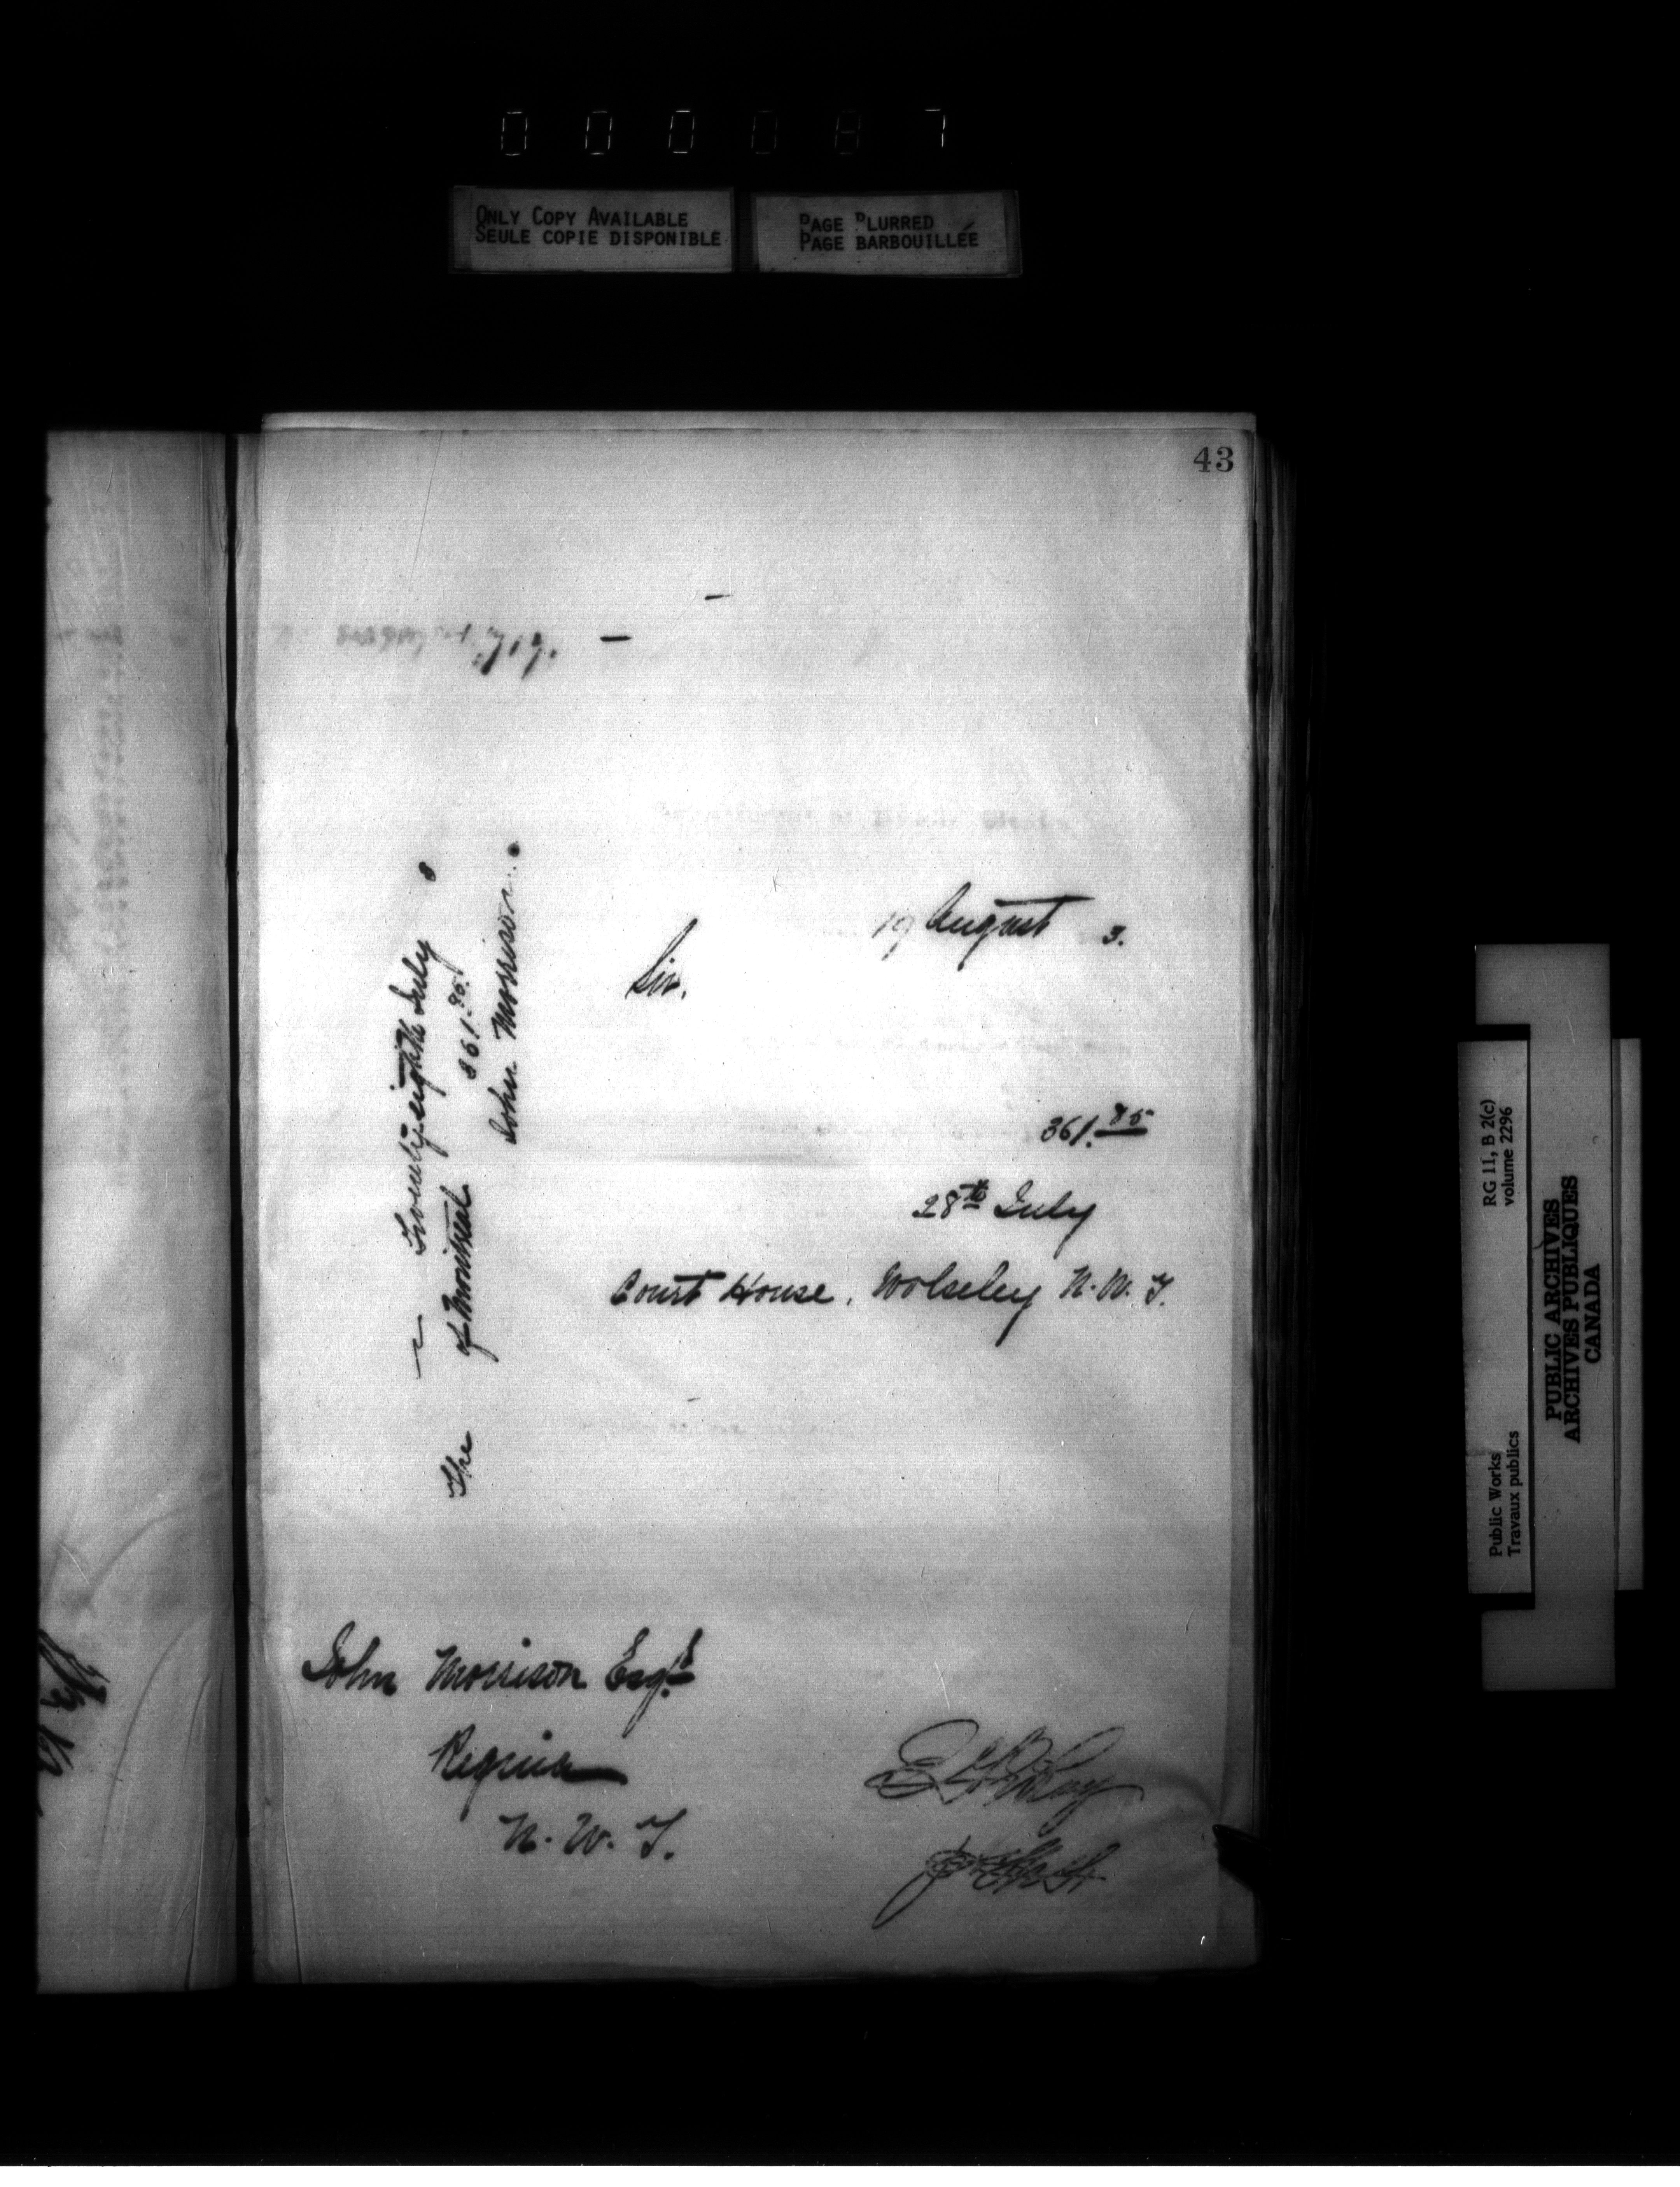 000087
ONLY COPY AVAILABLE
SEULE COPIE DISPONIBLE
PAGE BLURRED
PAGE BARBOUILLÉE
43
717.
19 August 3.
Sir,
361.85
28th July
Court House, Wolseley N.W.T.
Twenty-eighth July 8
The of Montreal 361.85.
John Morrison.
John Morrison Esqr
Regina
N.W.T.
RG 11, B 2(c)
volume 2296
Public Works
Travaux publics
PUBLIC ARCHIVES
ARCHIVES PUBLIQUES
CANADA